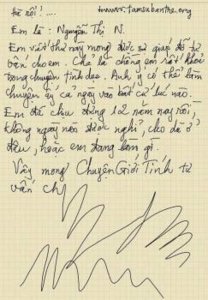 tôi nói ! ....
www.tamsubanthe.org
Em là : Nguyễn Thị N.
Em viết thư này mong được sự giúp đỡ tư
vấn cho em. Chả là chồng em rất khỏe
trong chuyện tình dục. Anh ý có thể làm
chuyện ấy cả ngày vào bất cứ lúc nào.
Em đã chịu đựng 12 năm nay rồi,
không ngày nào được nghỉ, cho dù ở
đâu, hoặc em đang làm gì.
Vậy mong Chuyên Giới Tính tư
vấn chị